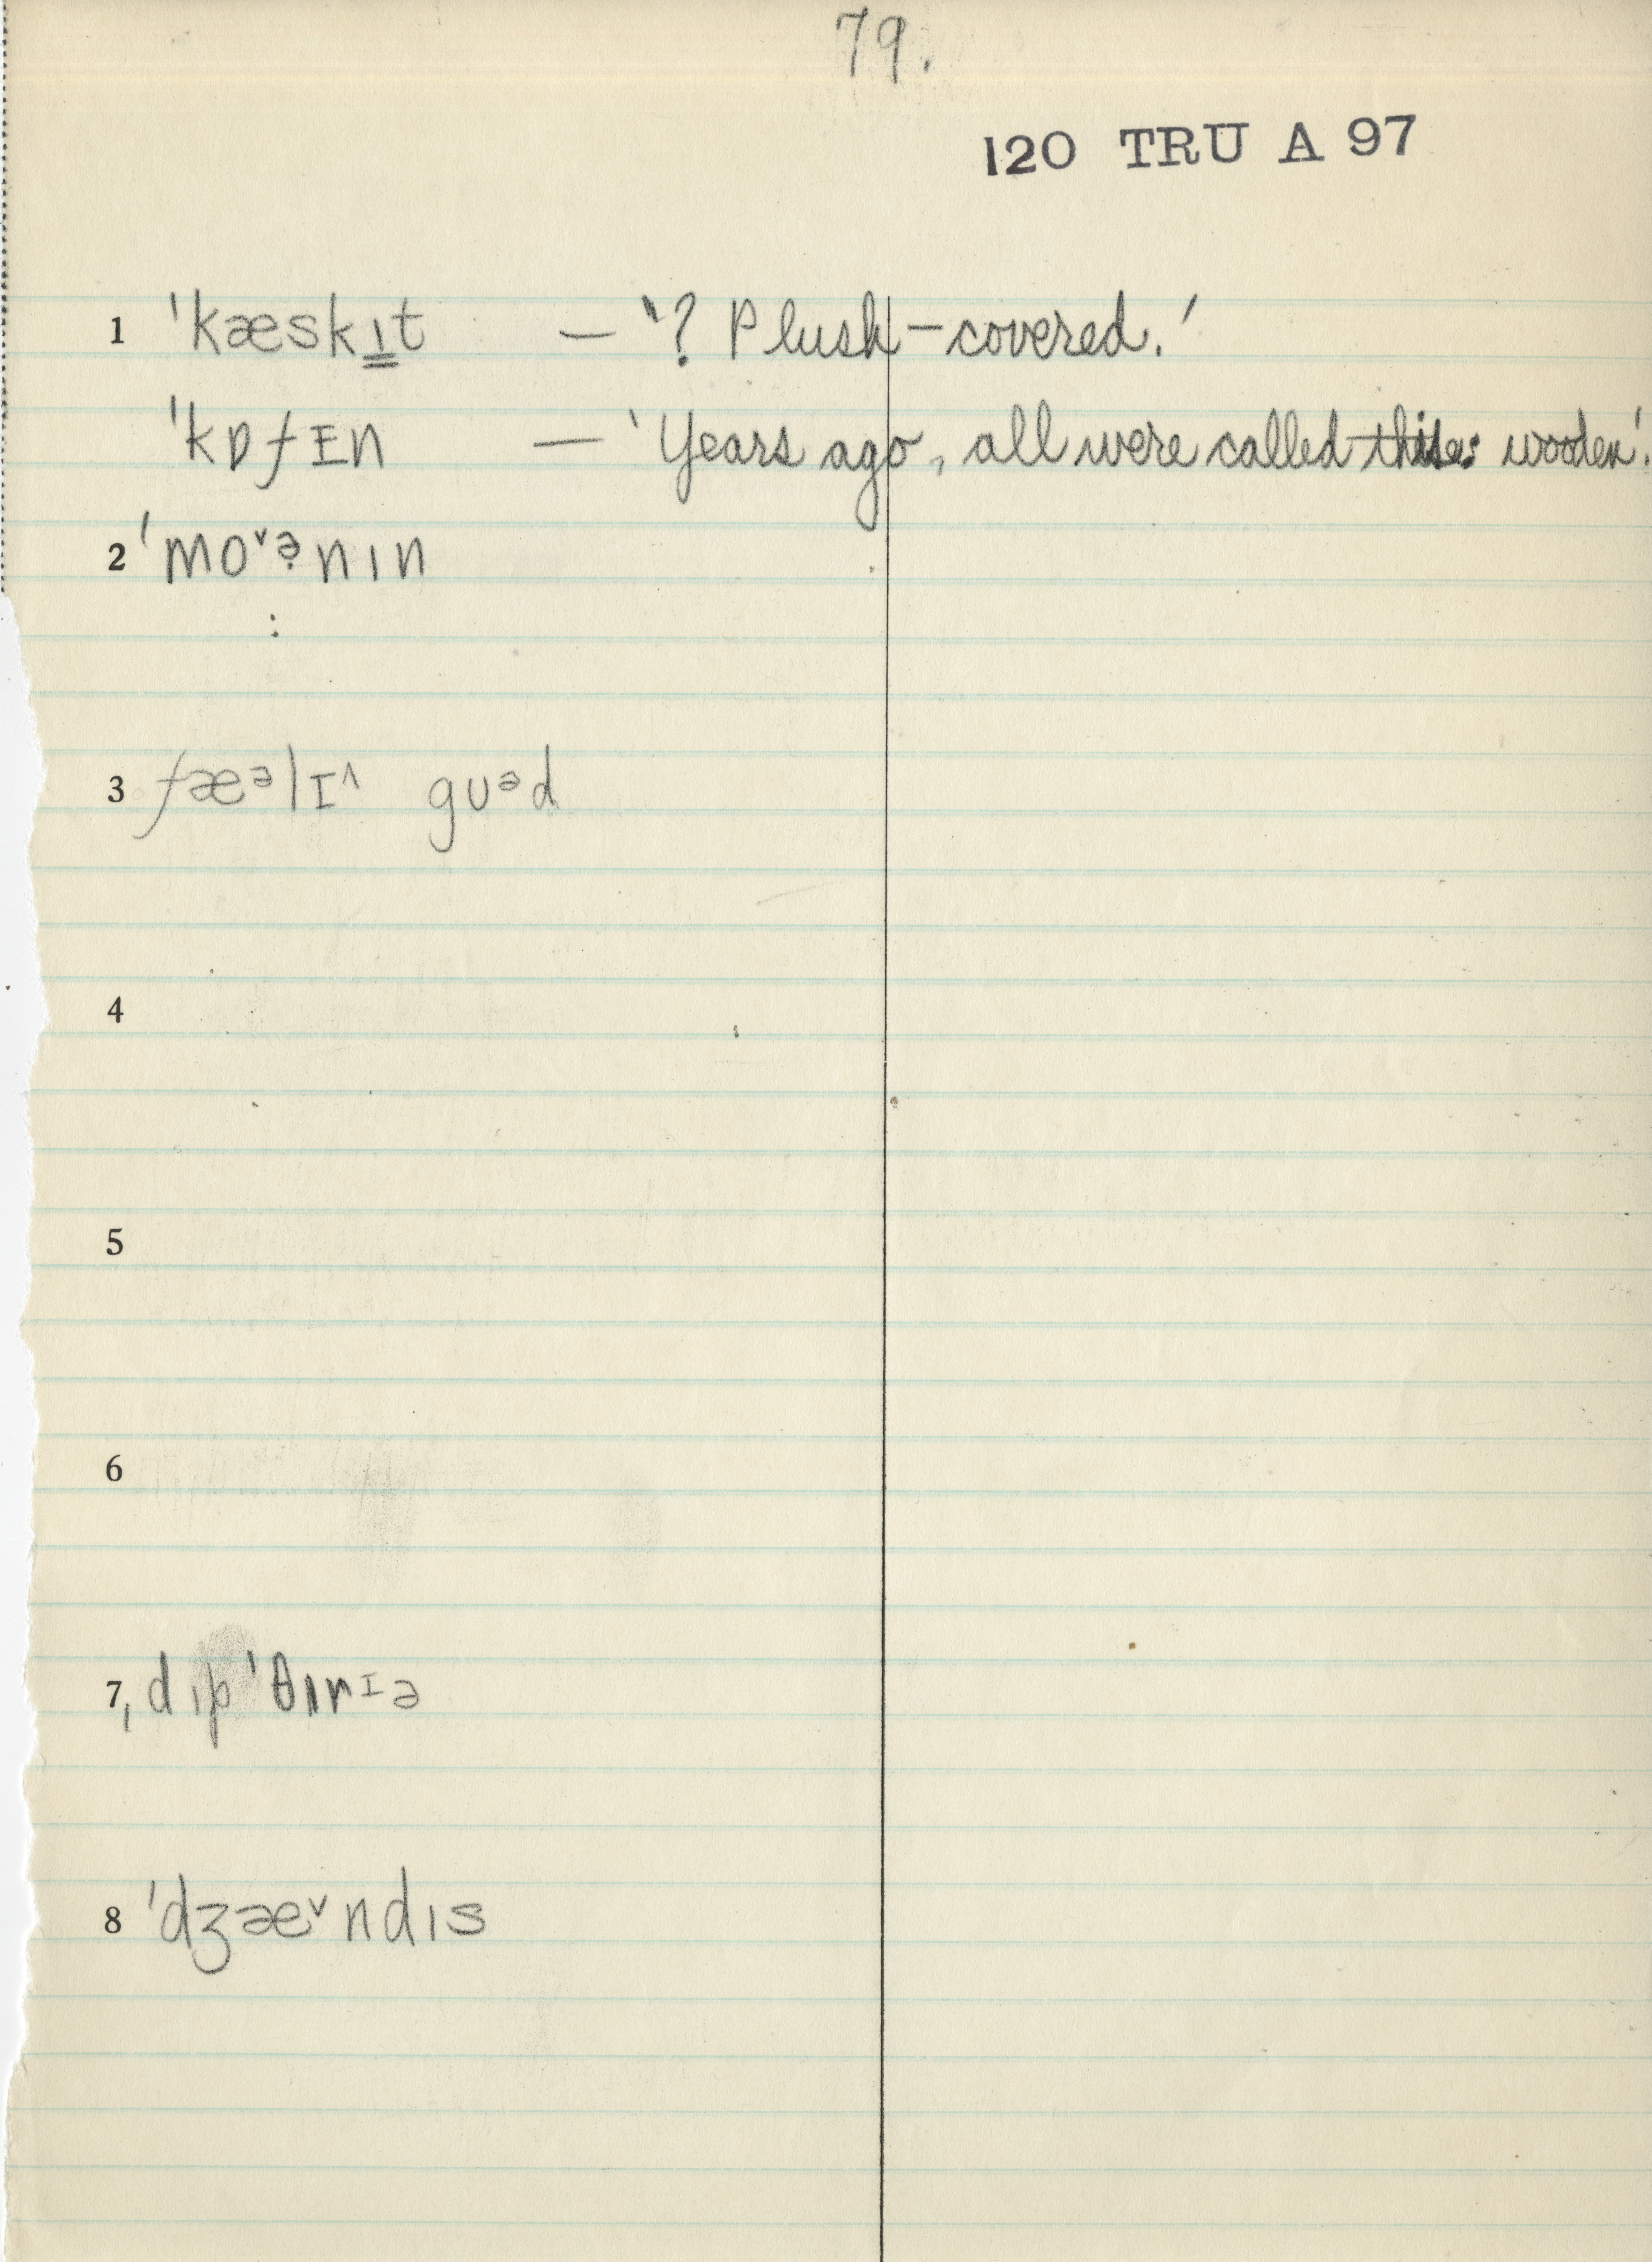 79.
120 TRU A 97
1 ˈkæskɪ̳t — '? Plush-covered.'
ˈkɒfɪn — 'Years ago, all were called this: wooden'.
2 ˈmoˇə̣nɪn
:
3 fæᵊlɪ^ gʊᵊd
4
5
6
7 ˌdɪpˈθɪrɪə
8 ˈdʒæˇndɪs